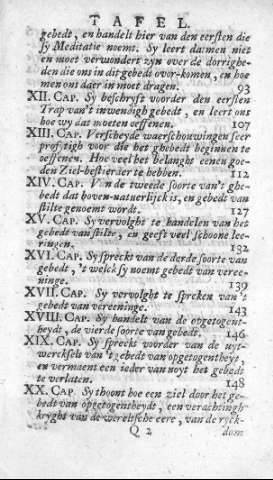 TAFEL.
gebedt, en handelt hier van den eersten die
sy Meditatie noemt. Sy leert datmen niet
en moet verwondert zyn over de dorrighe-
den die ons in dit gebedt over-komen, en hoe
men ons daer in moet dragen. 93
XII. CAP. Sy beschryft voorder den eersten
Trap van't inwendigh gebedt, en leert ons
hoe wy dat moeten oeffenen. 107
XIII. CAP. Verscheyde waerschouwingen seer
profijtigh voor die het ghebedt beginnen te
oeffenen. Hoe veel het belanght eenen goe-
den Ziel-bestierder te hebben. 112
XIV. CAP. Van de tweede soorte van't ghe-
bedt dat boven-natuerlijck is, en gebedt van
stilte genoemt wordt. 127
XV. CAP. Sy vervolght te handelen van het
gebedt van stilte, en geeft veel schoone lee-
ringen. 132
XVI. CAP. Sy spreckt van de derde soorte van
gebedt, 't welck sy noemt gebedt van veree-
ninge. 139
XVII. CAP. Sy vervolght te spreken van't
gebedt van vereeninge. 143
XVIII. CAP. Sy handelt van de opgetogent-
heydt, de vierde soorte van gebedt. 146
XIX. CAP. Sy spreckt voorder van de uyt-
werckselen van't gebedt van opgetogentheyt,
en vermaent een ieder van noyt het gebedt
te verlaten. 148
XX. CAP. Sy thoont hoe een ziel door het ge-
bedt van opgetogentheydt, een verachtingh
kryght van de wereltsche eere, van de ryck-
Q 2 dom